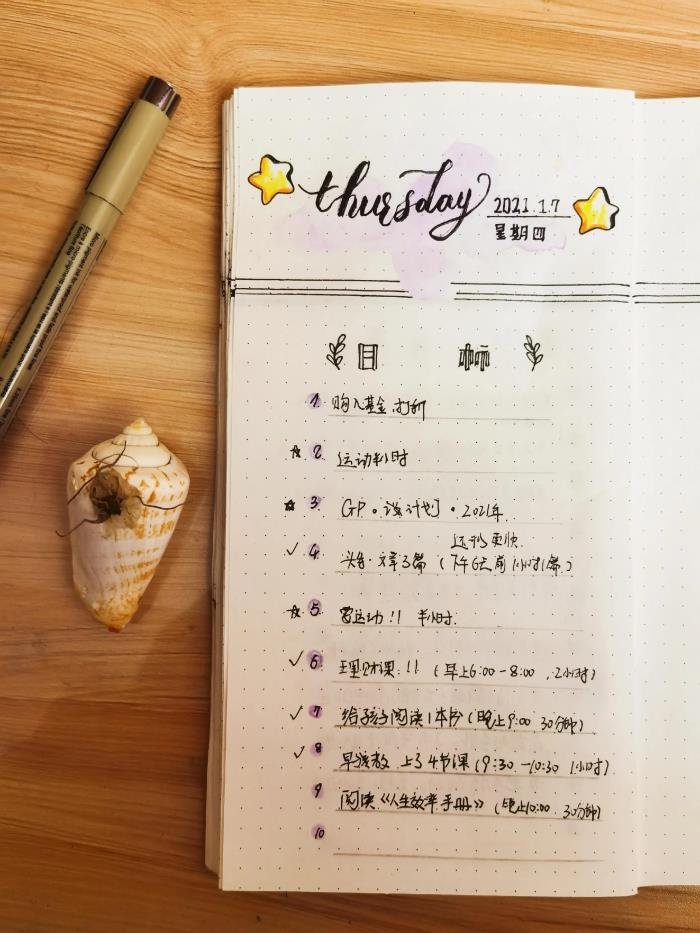 thursday 2021.1.7
星期四
目标
1. 购入基金.打新
2. 运动半时
3. GP。计划。2021年
还可更快
4. 头条·文章3篇(下午6点前 1小时1篇)
5. 运动!! 半小时.
6 理财课:!!(早上6:00-8:00,2小时)
7 给孩子阅读1本书(晚上9:00 30分钟)
8 早教 上 4节课(9:30-10:30 1小时)
9 阅读《人生效率手册》(晚上10:00. 30分钟)
10